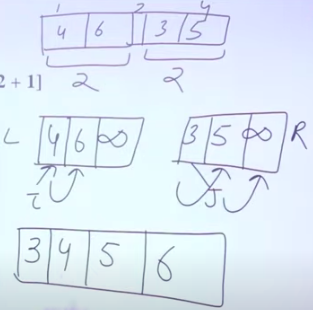 1 2 4
4 6 3 5
2 + 1] 2 2
L 4 6 ∞ 3 5 ∞ R
i j
3 4 5 6